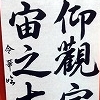 仰觀宇
宙之大
令華